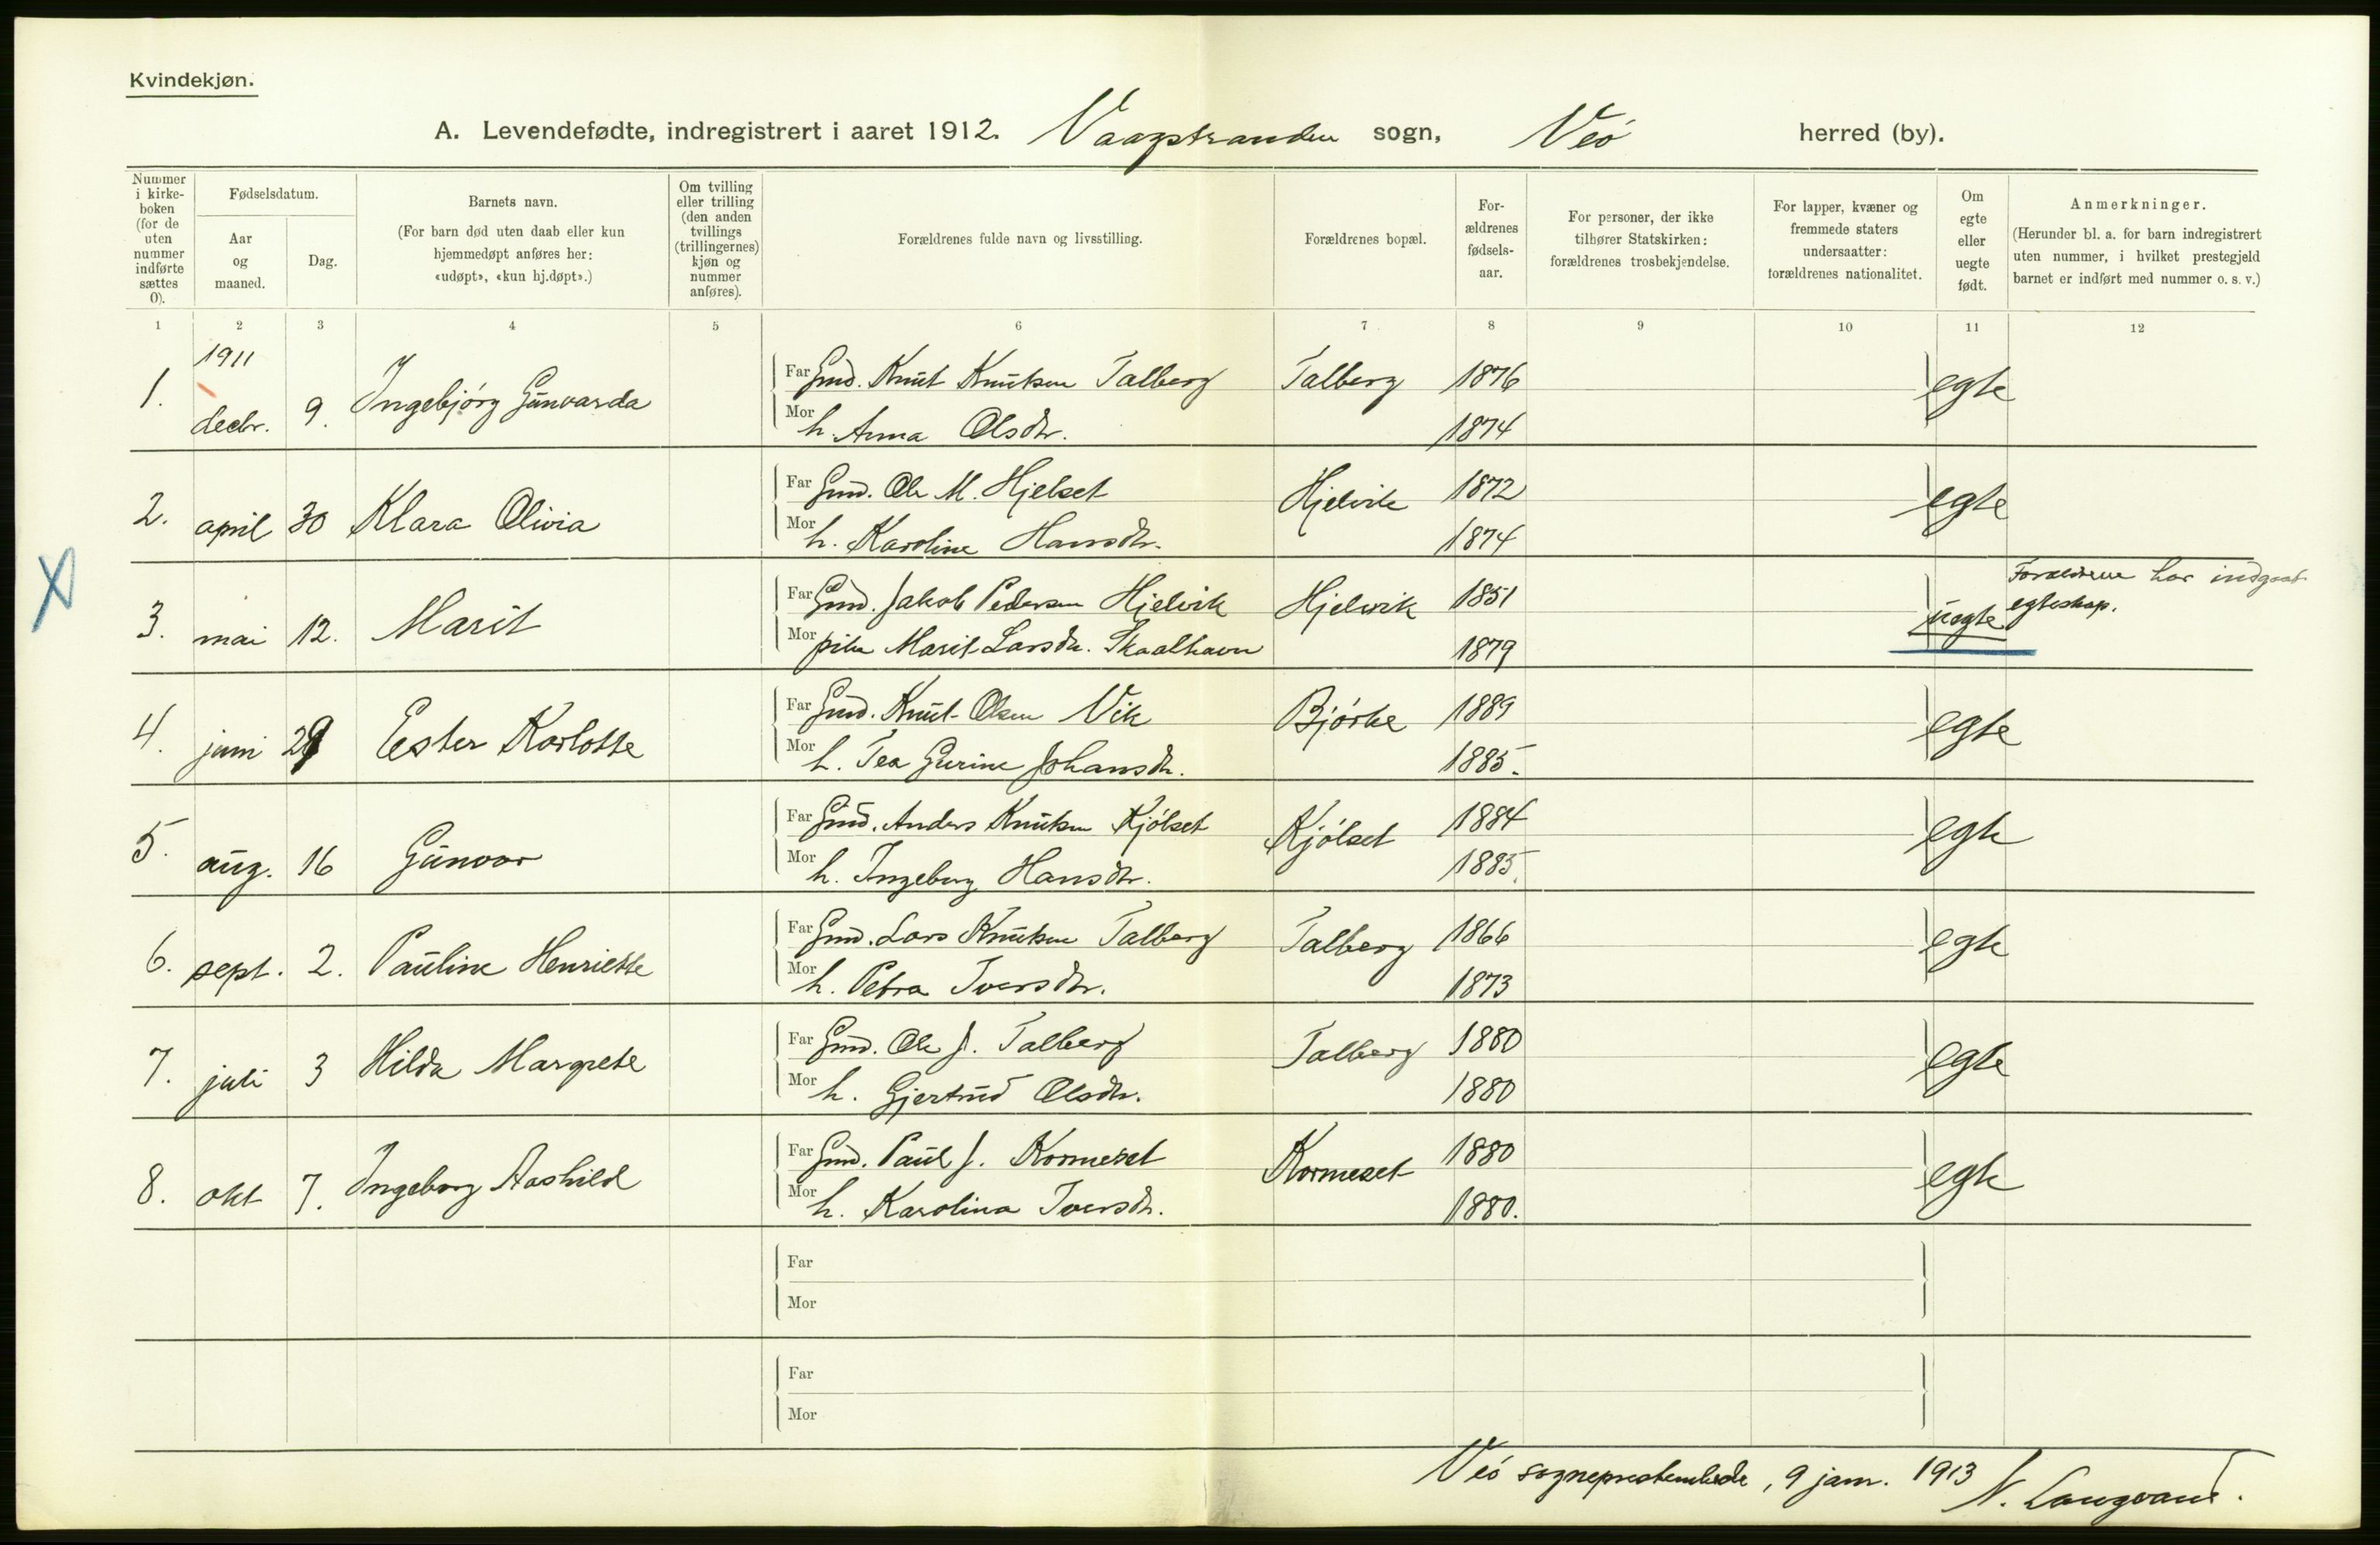 Kvindekjøn.
A. Levendefødte, indregistrert i aaret 1912. Vaagstranden sogn, Veö herred (by).
Nummer i kirke-boken (for de uten nummer indførte sættes 0).
Fødselsdatum.
Aar og maaned.
Dag.
Barnets navn.
(For barn død uten daab eller kun hjemmedøpt anføres her: «udøpt», «kun hj.døpt».)
Om tvilling eller trilling (den anden tvillings (trillingernes) kjøn og nummer anføres).
Forældrenes fulde navn og livsstilling.
Forældrenes bopæl.
For-ældrenes fødsels-aar.
For personer, der ikke tilhører Statskirken: forældrenes trosbekjendelse.
For lapper, kvæner og fremmede staters undersaatter: forældrenes nationalitet.
Om egte eller uegte født.
Anmerkninger.
(Herunder bl. a. for barn indregistrert uten nummer, i hvilket prestegjeld barnet er indført med nummer o. s. v.)
1 2 3 4 5 6 7 8 9 10 11 12
1911
1. decbr. 9. Ingebjörg Gunvarda Far Gmd. Knut Knutsen Talberg Talberg 1876 egte
Mor h. Anna Olsdtr. 1874
2. april 30 Klara Olivia Far Gmd. Ole M. Hjelset Hjelvik 1872 egte
Mor h. Karoline Hansdtr. 1874
3. mai 12. Marit Far Gmd. Jakob Pedersen Hjelvik Hjelvik 1851 uegte Forældrene har indgaat egteskap.
Mor pike Marit Larsdtr. Skaalhavn 1879
4. juni 29 Ester Karlotte Far Gmd. Knut Olsen Vik Bjørke 1889 egte
Mor h. Tea Gurine Johansdtr. 1885.
5. aug. 16 Gunvor Far Gmd. Anders Knutsen Kjölset Kjölset 1884 egte
Mor h. Ingeborg Hansdtr. 1885.
6. sept. 2. Pauline Henriette Far Gmd. Lars Knutsen Talberg Talberg 1866 egte
Mor h. Petra Iversdtr. 1873
7. juli 3 Hilda Margrete Far Gmd. Ole J. Talberg Talberg 1880 egte
Mor h. Gjertrud Olsdtr. 1880
8. okt 7. Ingeborg Aashild Far Gmd. Paul J. Kormeset Kormeset 1880 egte
Mor h. Karolina Iversdtr. 1880.
Far
Mor
Far
Mor
Veö sogneprestembede, 9 jan. 1913 N. Langvand.